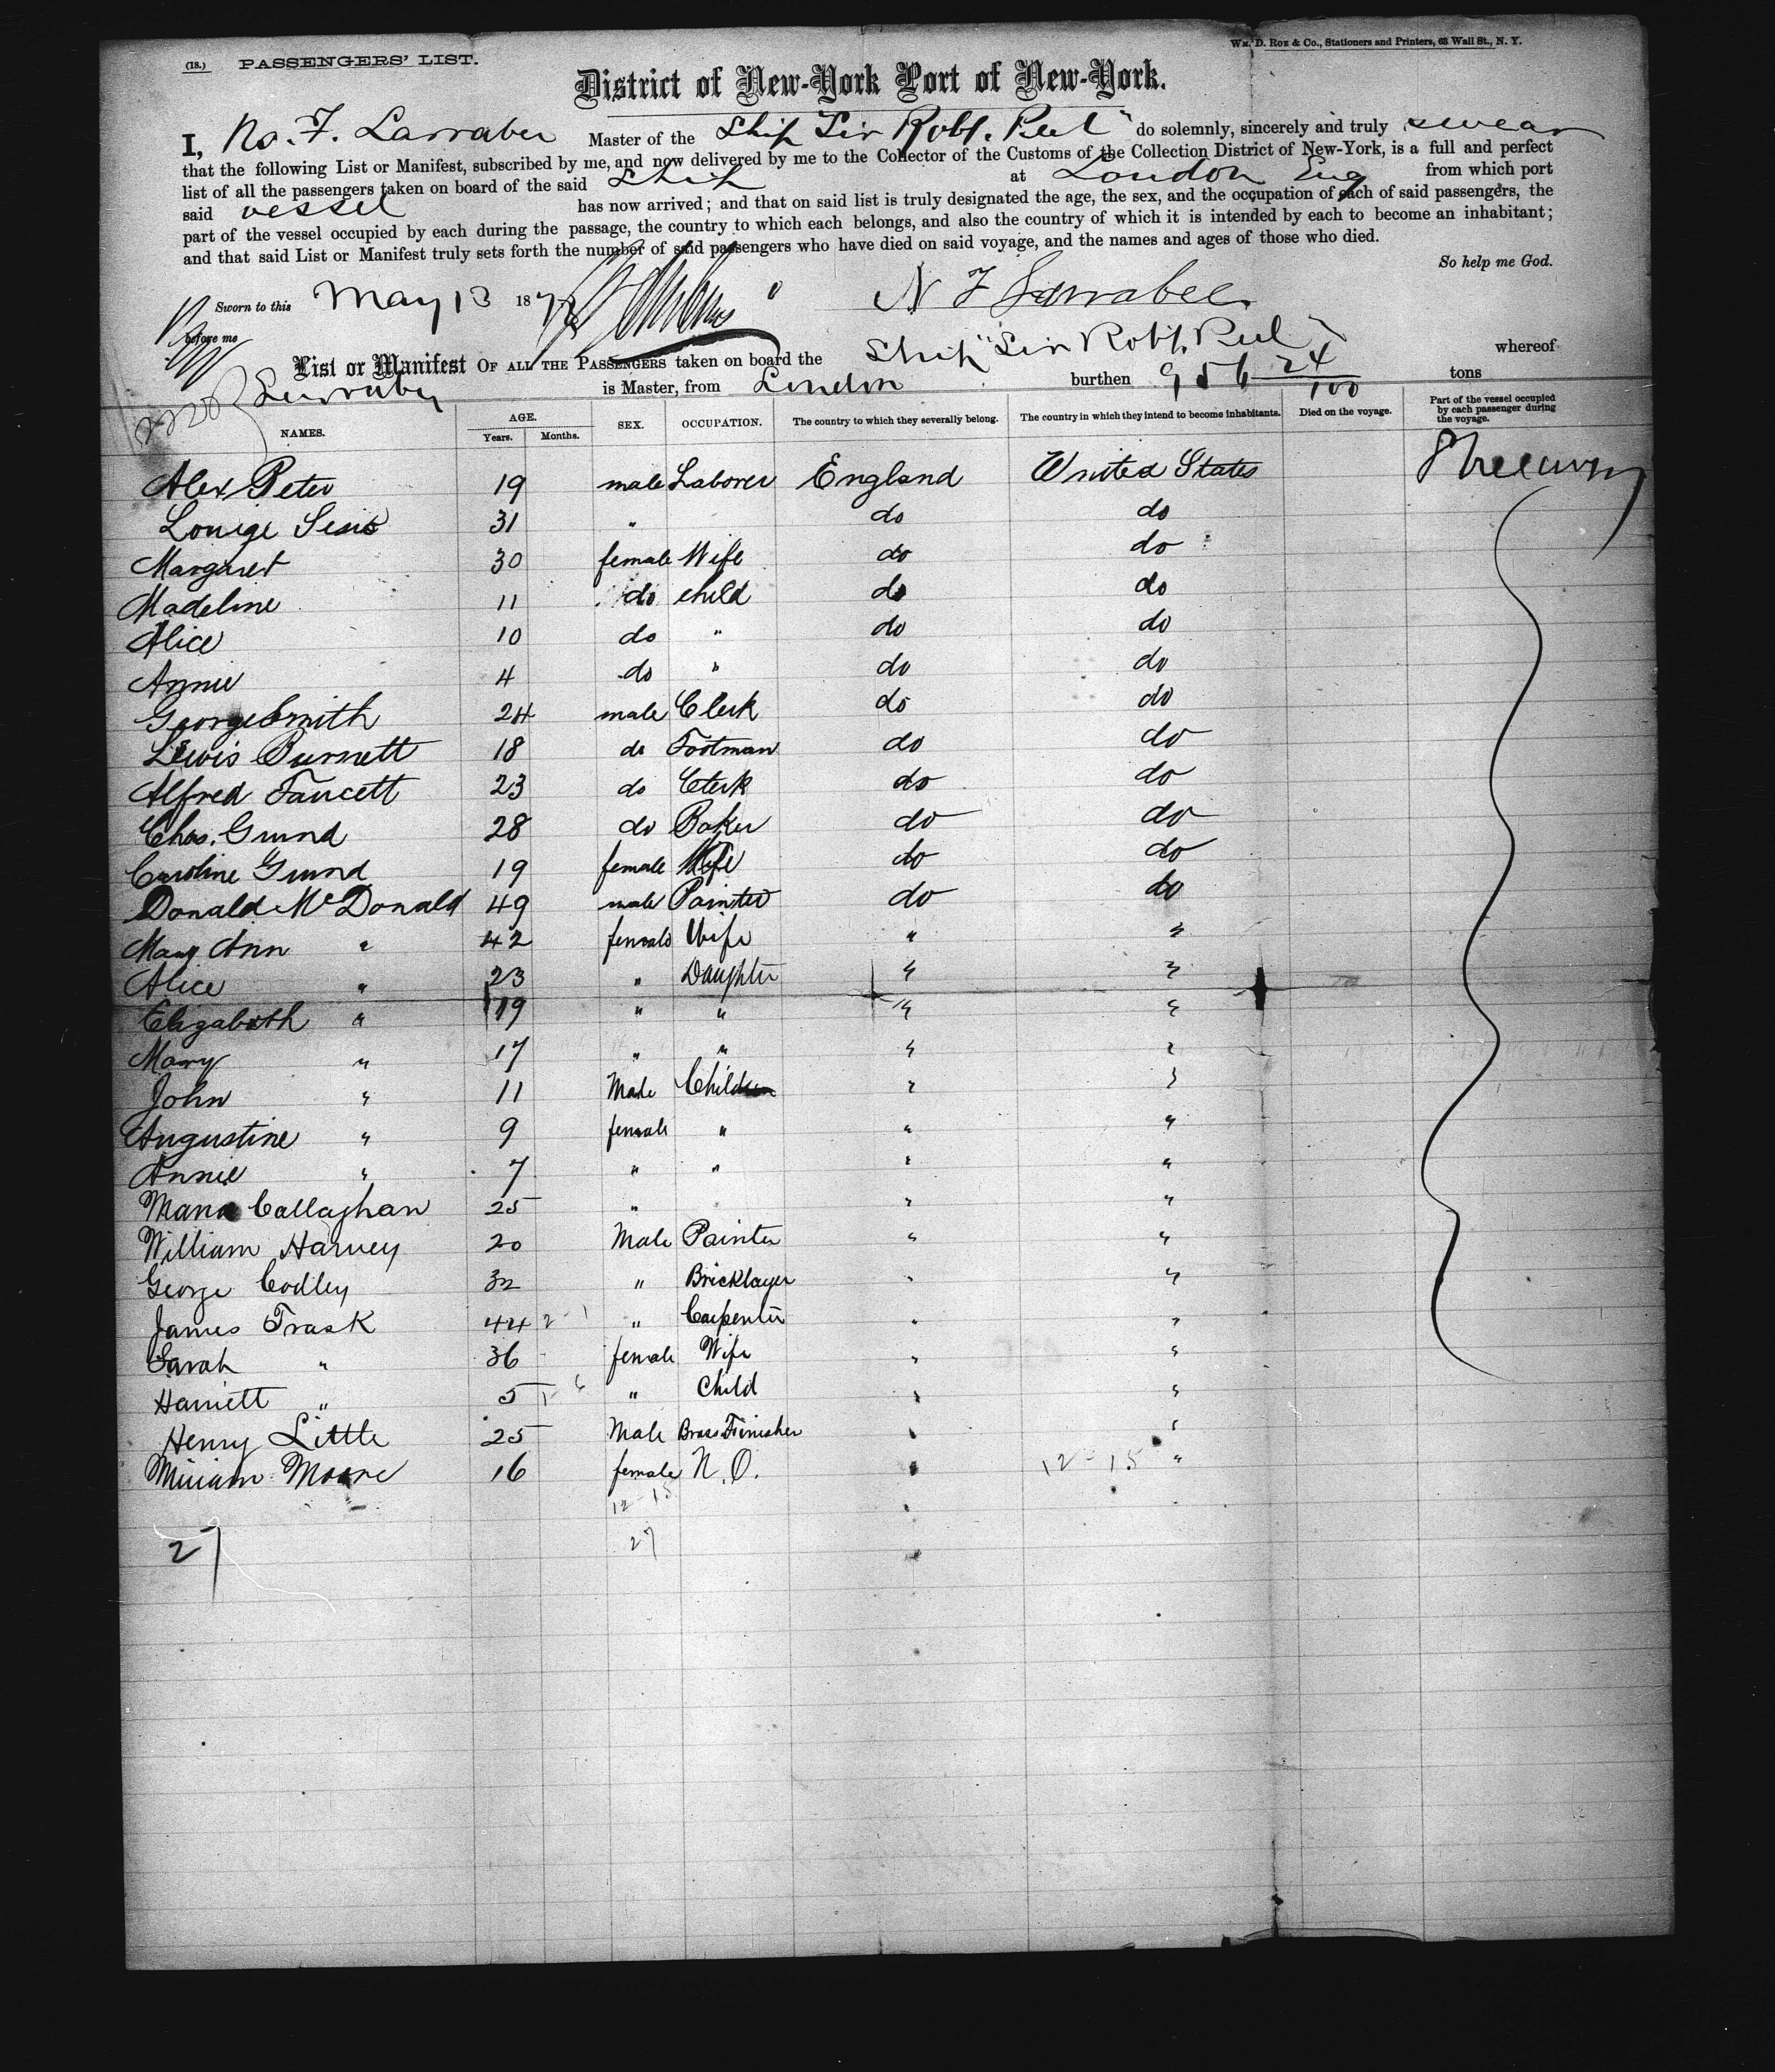 Wm. D. Roe & Co., Stationers and Printers, 63 Wall St., N. Y.
(18.) PASSENGERS' LIST.
District of New-York Port of New-York.
I, No. F. Larrabee Master of the Ship "Sir Robt. Peel" do solemnly, sincerely and truly swear
that the following List or Manifest, subscribed by me, and now delivered by me to the Collector of the Customs of the Collection District of New-York, is a full and perfect
list of all the passengers taken on board of the said Ship at London Eng from which port
said vessel has now arrived; and that on said list is truly designated the age, the sex, and the occupation of each of said passengers, the
part of the vessel occupied by each during the passage, the country to which each belongs, and also the country of which it is intended by each to become an inhabitant;
and that said List or Manifest truly sets forth the number of said passengers who have died on said voyage, and the names and ages of those who died.
So help me God.
Sworn to this May 13 187 N F Larrabee
before me
List or Manifest OF ALL THE PASSENGERS taken on board the Ship "Sir Robt. Peel" whereof
Larrabee is Master, from London burthen 956 24/100 tons
NAMES. AGE. Years. Months. SEX. OCCUPATION. The country to which they severally belong. The country in which they intend to become inhabitants. Died on the voyage. Part of the vessel occupied by each passenger during the voyage.
Alex Peter 19 male Laborer England United States
Louige 31 " do do
Margaret 30 female Wife do do
Madeline 11 do child do do
Alice 10 do " do do
Annie 4 do " do do
George Smith 24 male Clerk do do
Lewis Burnett 18 do Footman do do
Alfred Faucett 23 do Clerk do do
Chas. Grund 28 do Baker do do
Caroline Grund 19 female Wife do do
Donald McDonald 49 male Painter do do
Mary Ann " 42 female Wife " "
Alice " 23 " Daughter " "
Elizabeth " 19 " " " "
Mary " 17 " " " "
John " 11 Male Child " "
Augustine " 9 female " " "
Annie " 7 " " " "
Callaghan 25 " " "
William Harvey 20 Male Painter " "
George Codley 32 " Bricklayer " "
James Trask 44 " Carpenter " "
Sarah " 36 female Wife " "
Harriett " 5 " Child " "
Henry Little 25 Male Brass Finisher " "
Miriam Moore 16 female N. O. " 12-15 "
12-15
27 27